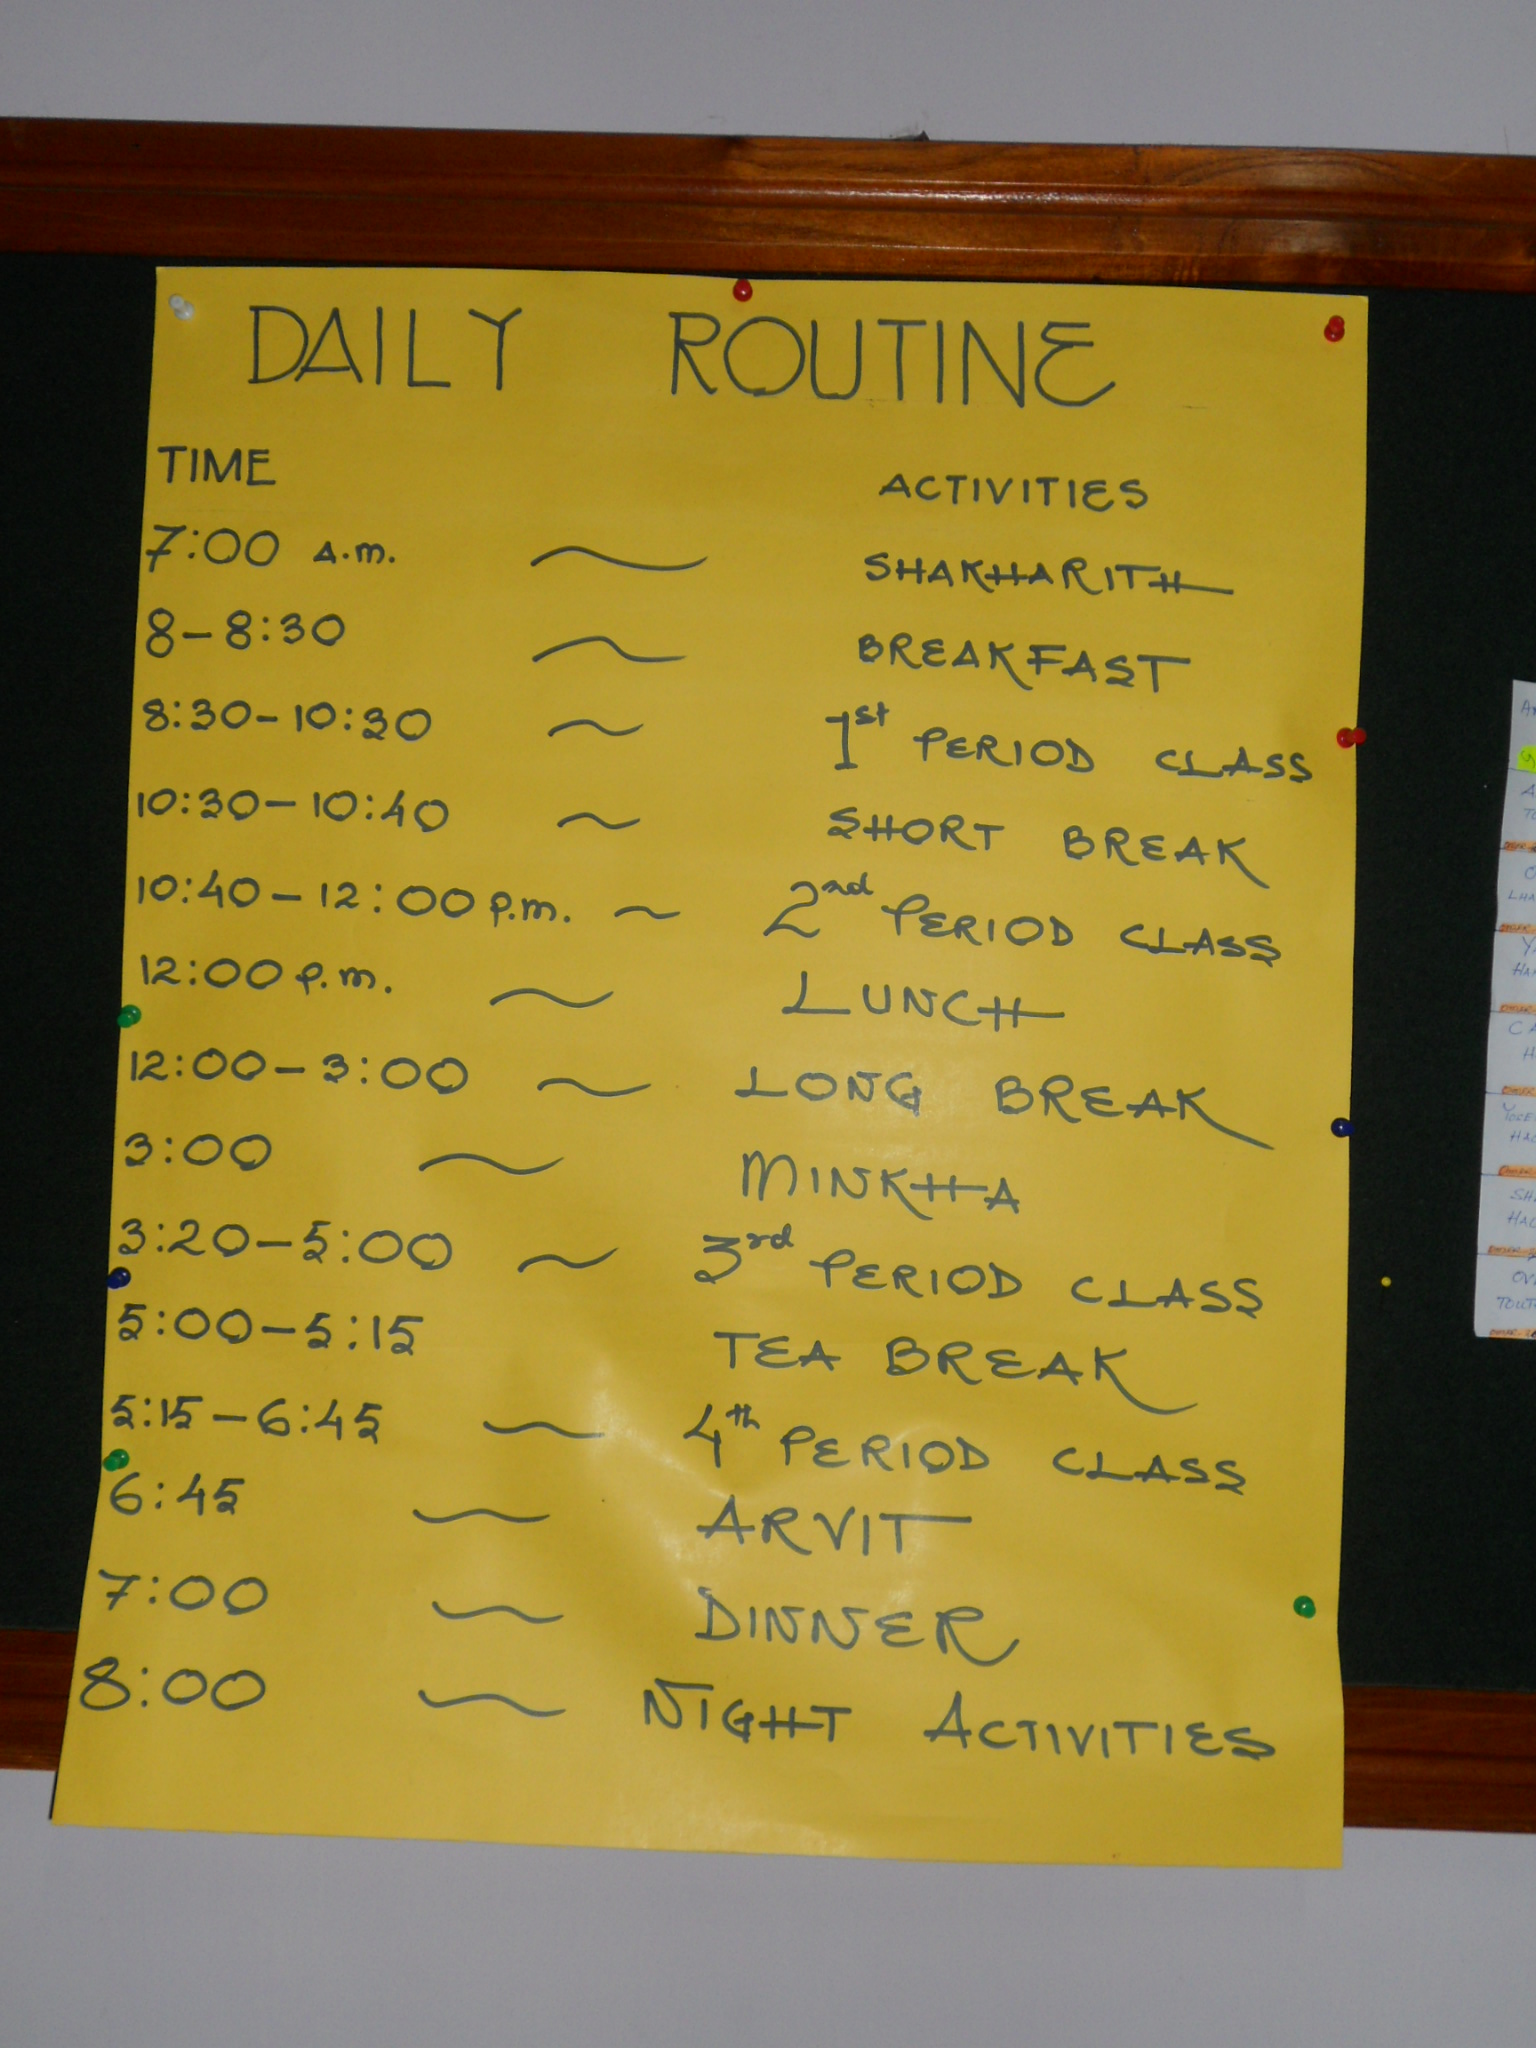 DAILY ROUTINE
TIME ACTIVITIES
7:00 A.m. ~ SHAKHARITH
8-8:30 ~ BREAKFAST
8:30-10:30 ~ 1st PERIOD CLASS
10:30-10:40 ~ SHORT BREAK
10:40-12:00 p.m. ~ 2nd PERIOD CLASS
12:00 p.m. ~ LUNCH
12:00-3:00 ~ LONG BREAK
3:00 ~ MINKHA
3:20-5:00 ~ 3rd PERIOD CLASS
5:00-5:15 TEA BREAK
5:15-6:45 ~ 4th PERIOD CLASS
6:45 ~ ARVIT
7:00 ~ DINNER
8:00 ~ NIGHT ACTIVITIES